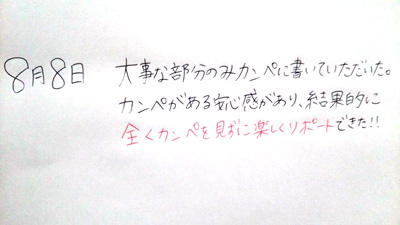 8月8日 大事な部分のみカンペに書いていただいた。
カンペがある安心感があり、結果的に
全くカンペを見ずに楽しくリポートできた!!